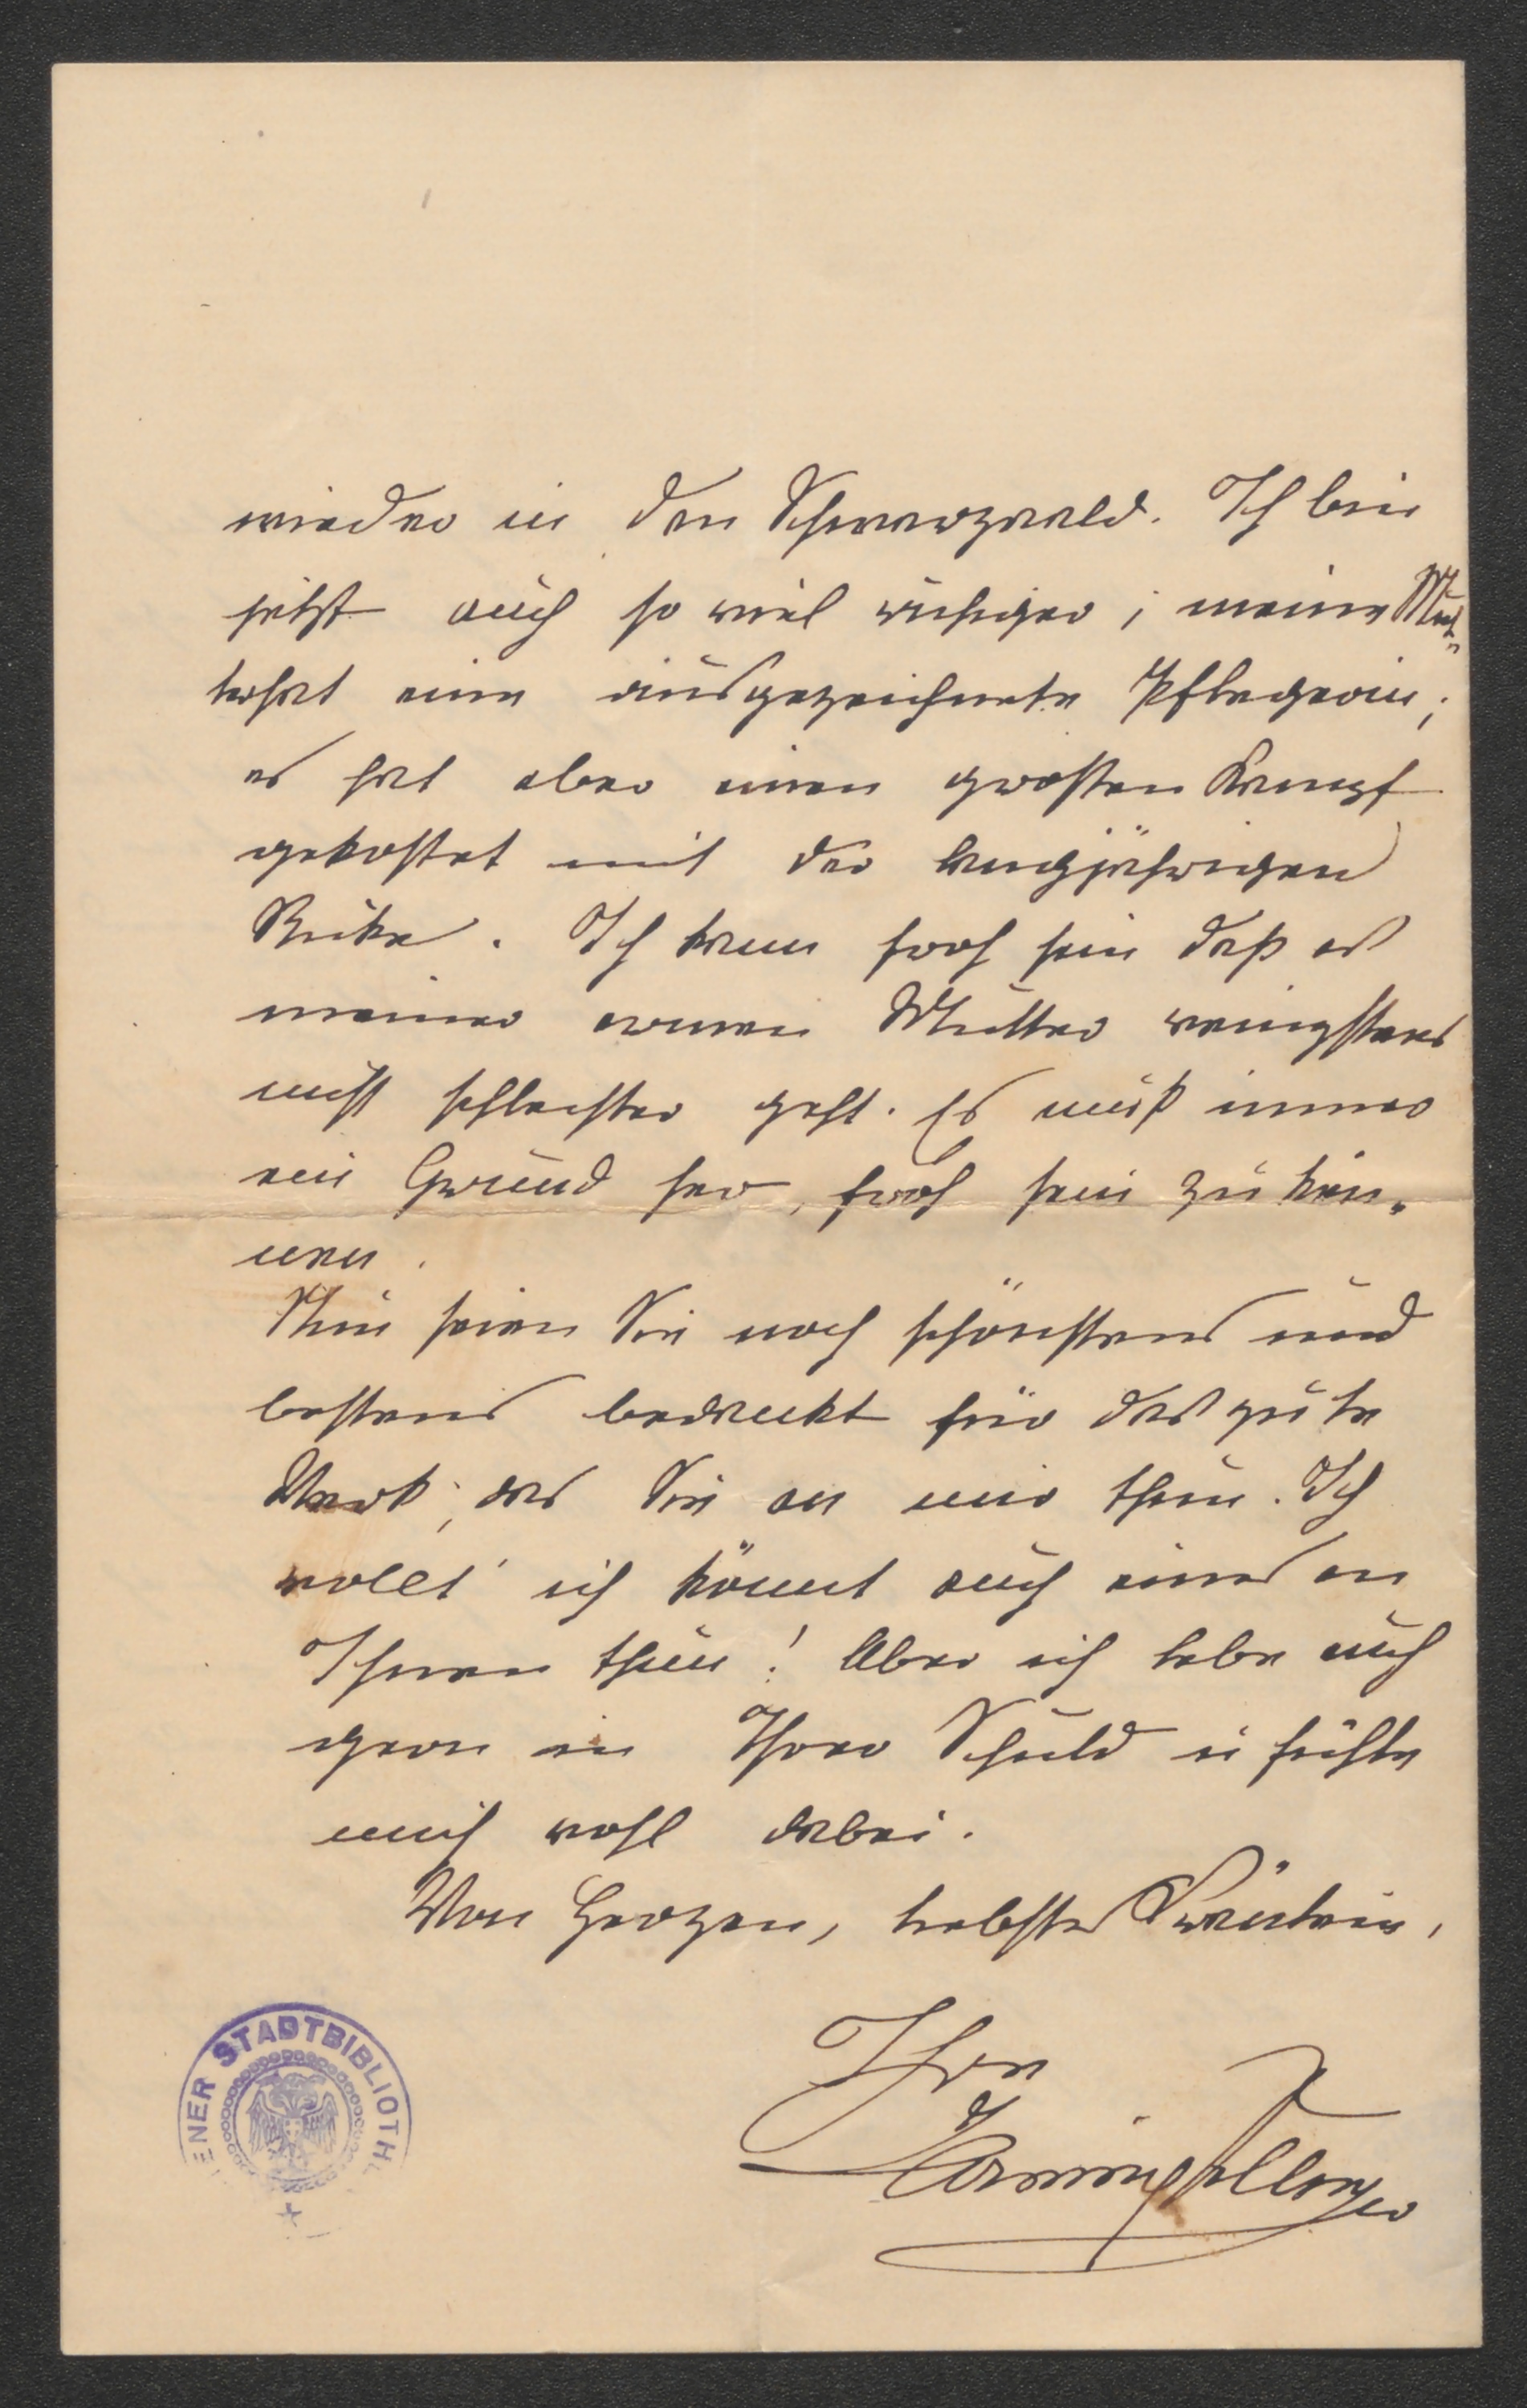 wieder in den Schwarzwald. Ich bin
jetzt auch so viel ruhiger; meine Mut„
ter hat eine ausgezeichnete Pflegerin;
es hat aber einen großen Kampf
gekostet mit der langjährigen
Rike. Ich kann froh sein daß es
meiner armen Mutter wenigstens
nicht schlechter geht. Es muß immer
ein Grund her, froh sein zu kön„
nen.
Nun seien Sie noch schönstens und
bestens bedankt für das gute
Werk, das Sie an mir thun. Ich
wollt' ich könnt auch eines an
Ihnen thun! Aber ich lebe auch
gern in Ihrer Schuld u fühle
mich wohl dabei.
Von Herzen, liebstes Fräulein,
Ihre
STADTBIBLIOTH